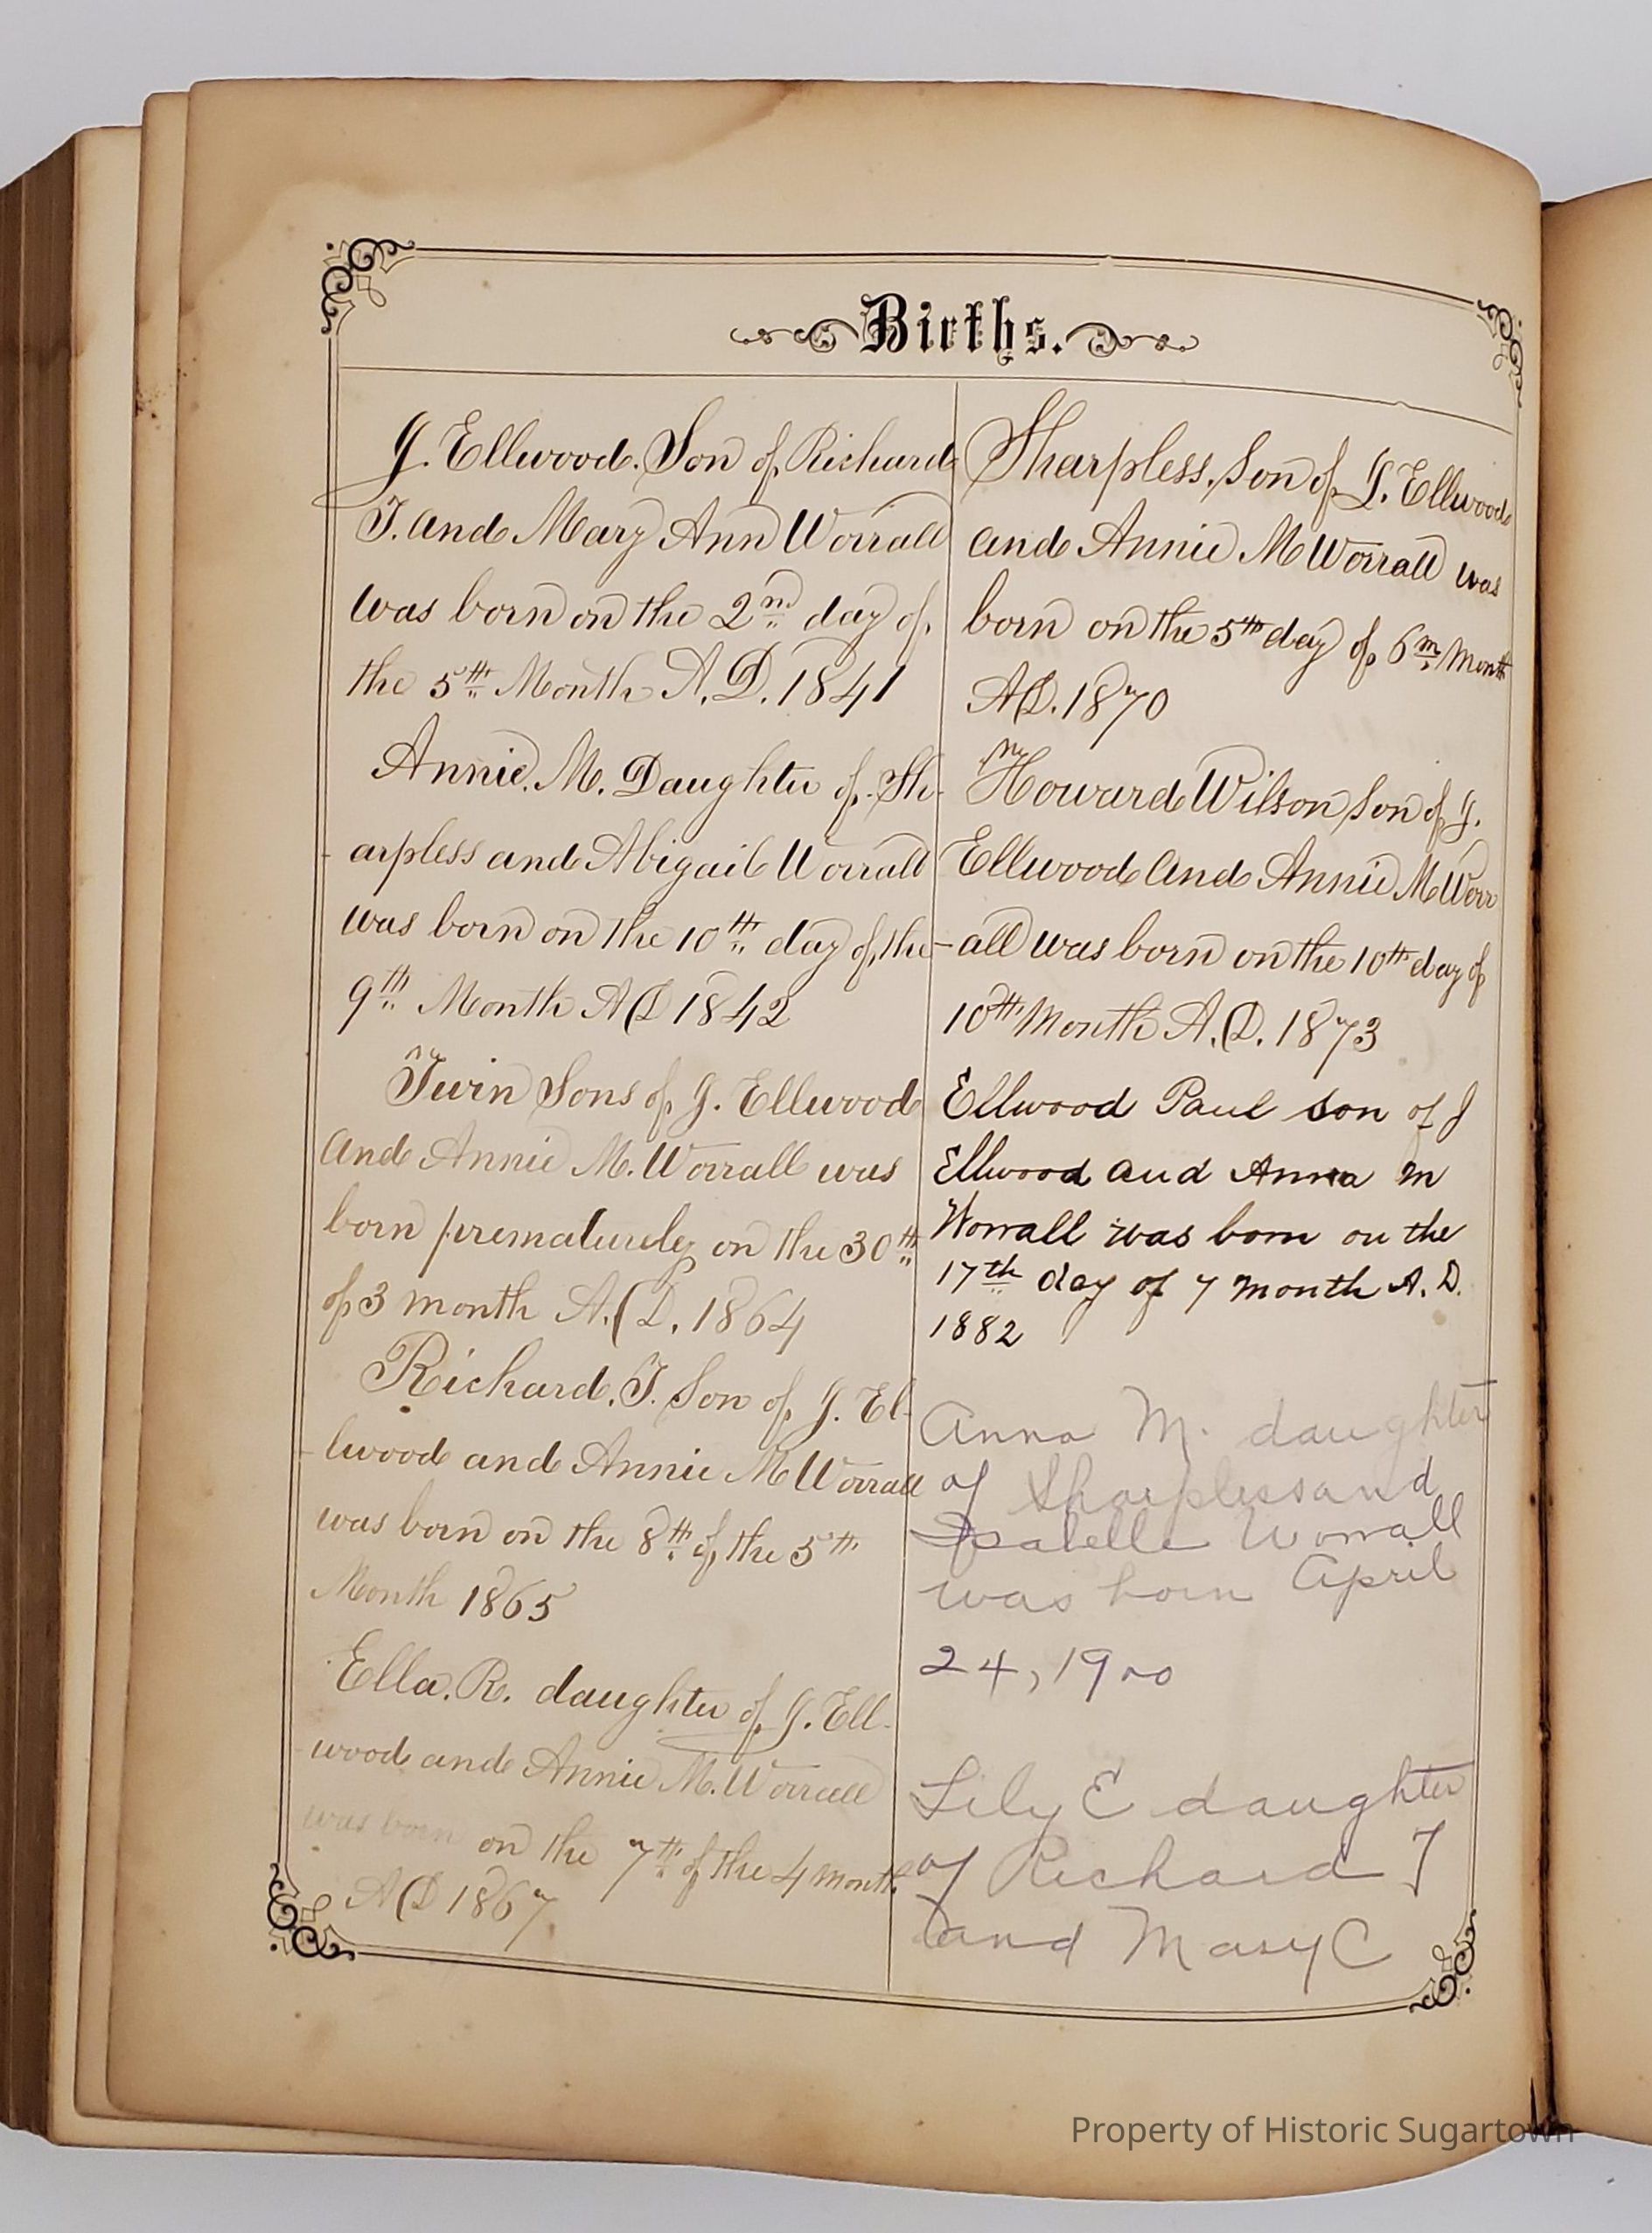 Births.
J. Ellwood. Son of Richard
T. and Mary Ann Worrall
was born on the 2nd day of
the 5th Month A.D. 1841
Annie. M. Daughter of Sh-
arpless and Abigail Worrall
was born on the 10th day of the
9th Month AD 1842
Twin Sons of J. Ellwood
and Annie M. Worrall was
born prematurely on the 30th
of 3 month A.D. 1864
Richard. T. Son of J. El-
lwood and Annie M Worrall
was born on the 8th of the 5th
Month 1865
Ella. R. daughter of J. Ell-
wood and Annie M. Worrall
was born on the 7th of the 4 month
AD 1867
Sharpless. Son of J. Ellwood
and Annie M Worrall was
born on the 5th day of 6m Month
AD. 1870
Howard Wilson Son of J.
Ellwood and Annie M Worr
-all was born on the 10th day of
10th Month A.D. 1873
Ellwood Paul son of J
Ellwood and Anna M
Worrall was born on the
17th day of 7 month A.D.
1882
Anna M. daughter
of Sharpless and
Isabelle Worrall
was born April
24, 1900
Lily E daughter
of Richard T
and Mary C
Property of Historic Sugartown